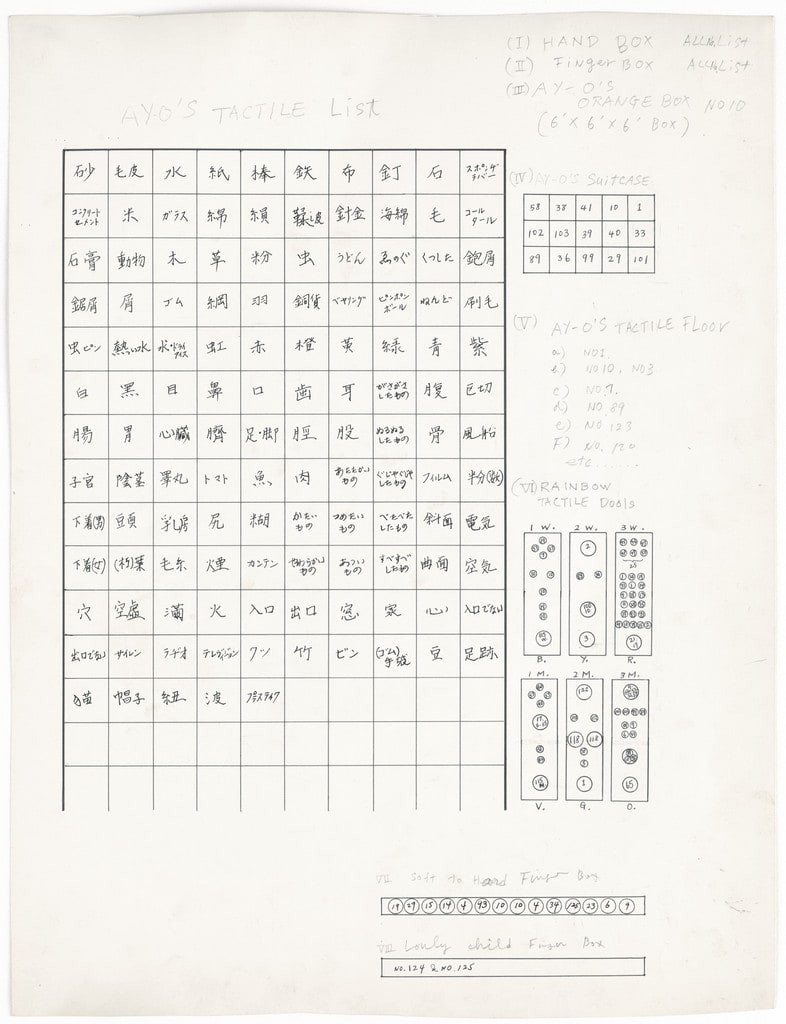 (I) HAND BOX ALL No List
(II) Finger BOX ALL No List
(III) AY-O'S
ORANGE BOX NO 10
(6' X 6' X 6' BOX)
AY-O'S TACTILE List
砂 毛皮 水 紙 棒 鉄 布 釘 石 スポンヂラバー
コンクリートセメント 米 ガラス 綿 鞣し皮 針金 海綿 毛 コールタール
石膏 動物 木 草 粉 虫 うどん ゑのぐ くつした 鉋屑
鋸屑 屑 ゴム 網 羽 銅貨 ベヤリング ピンポンボール ねんど 刷毛
虫ピン 熱い水 氷・ドライアイス 虹 赤 橙 黄 緑 青 紫
白 黒 目 鼻 口 歯 耳 がさがさしたもの 腹 巨切
腸 胃 心臓 臍 足・脚 脛 股 ぬるぬるしたもの 骨 風船
子宮 陰茎 睾丸 トマト 魚 肉 あたたかいもの ぐじゃぐじゃしたもの フィルム 半分(数)
下着(男) 豆頭 乳房 尻 糊 かたいもの つめたいもの べたべたしたもの 斜面 電気
下着(女) (枯)葉 毛糸 煙 カンテン やわらかいもの あついもの すべすべしたもの 曲面 空気
穴 空虚 満 火 入口 出口 窓 家 心 入口でない
出口でない サイレン ラヂオ テレヴィジョン クツ 竹 ビン (ゴム)手袋 豆 足跡
猫 帽子 紐 波 プラスティク
(IV) AY-O'S Suitcase
58 38 41 10 1
102 103 39 40 33
89 36 99 29 101
(V) AY-O'S TACTILE FLOOR
a) NO 1
b) NO 10, NO 3
c) NO 7.
d) NO. 89
e) NO 123
F) NO. 120
etc....
(VI) RAINBOW
TACTILE Dools
1 W. 2 W. 3 W.
B. Y. R.
1 M. 2 M. 3 M.
V. G. O.
VII Soft to Hard Finger Box
19 29 15 14 4 43 10 10 4 34 125 23 6 9
VIII Lonly child Finger Box
NO. 124 & NO. 125